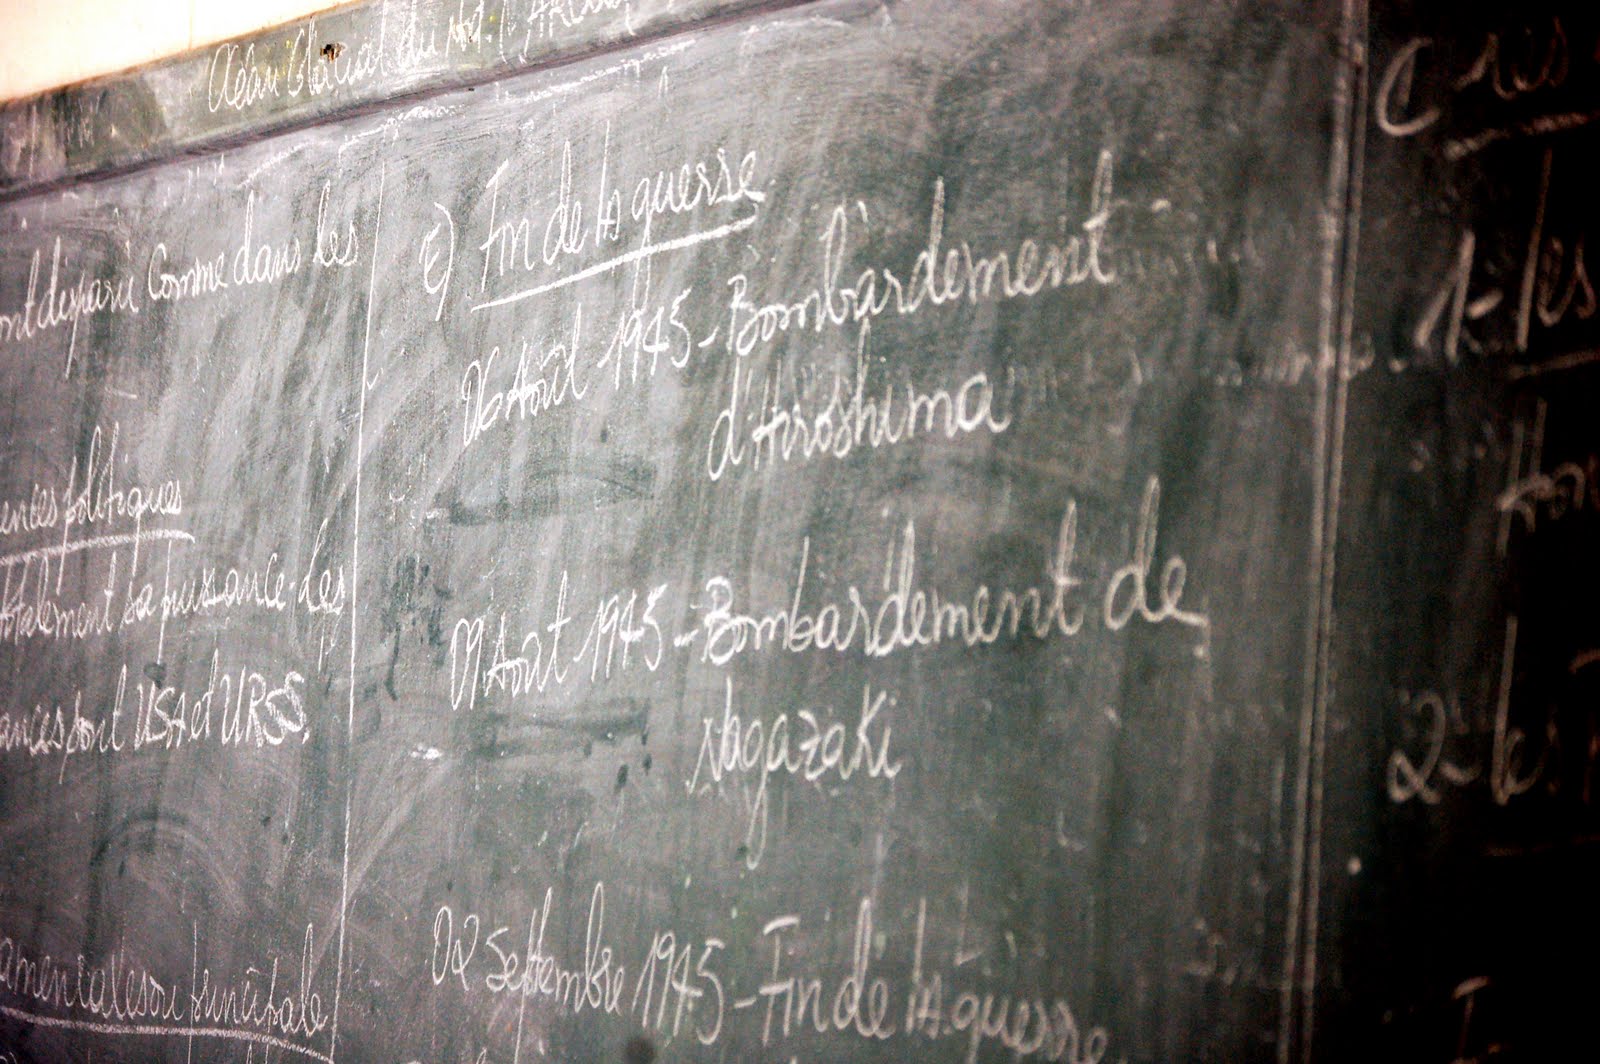 Océan Glacial du
ont disparu Comme dans les
ences politiques
totalement sa puissance. Les
ances sont USA et URSS.
amentales ou principale
E) Fin de la guerre
06 Août 1945 - Bombardement
d'Hiroshima
09 Août 1945 - Bombardement de
Nagazaki
02 Settembre 1945 - Fin de la guerre
C
1- les
2- les